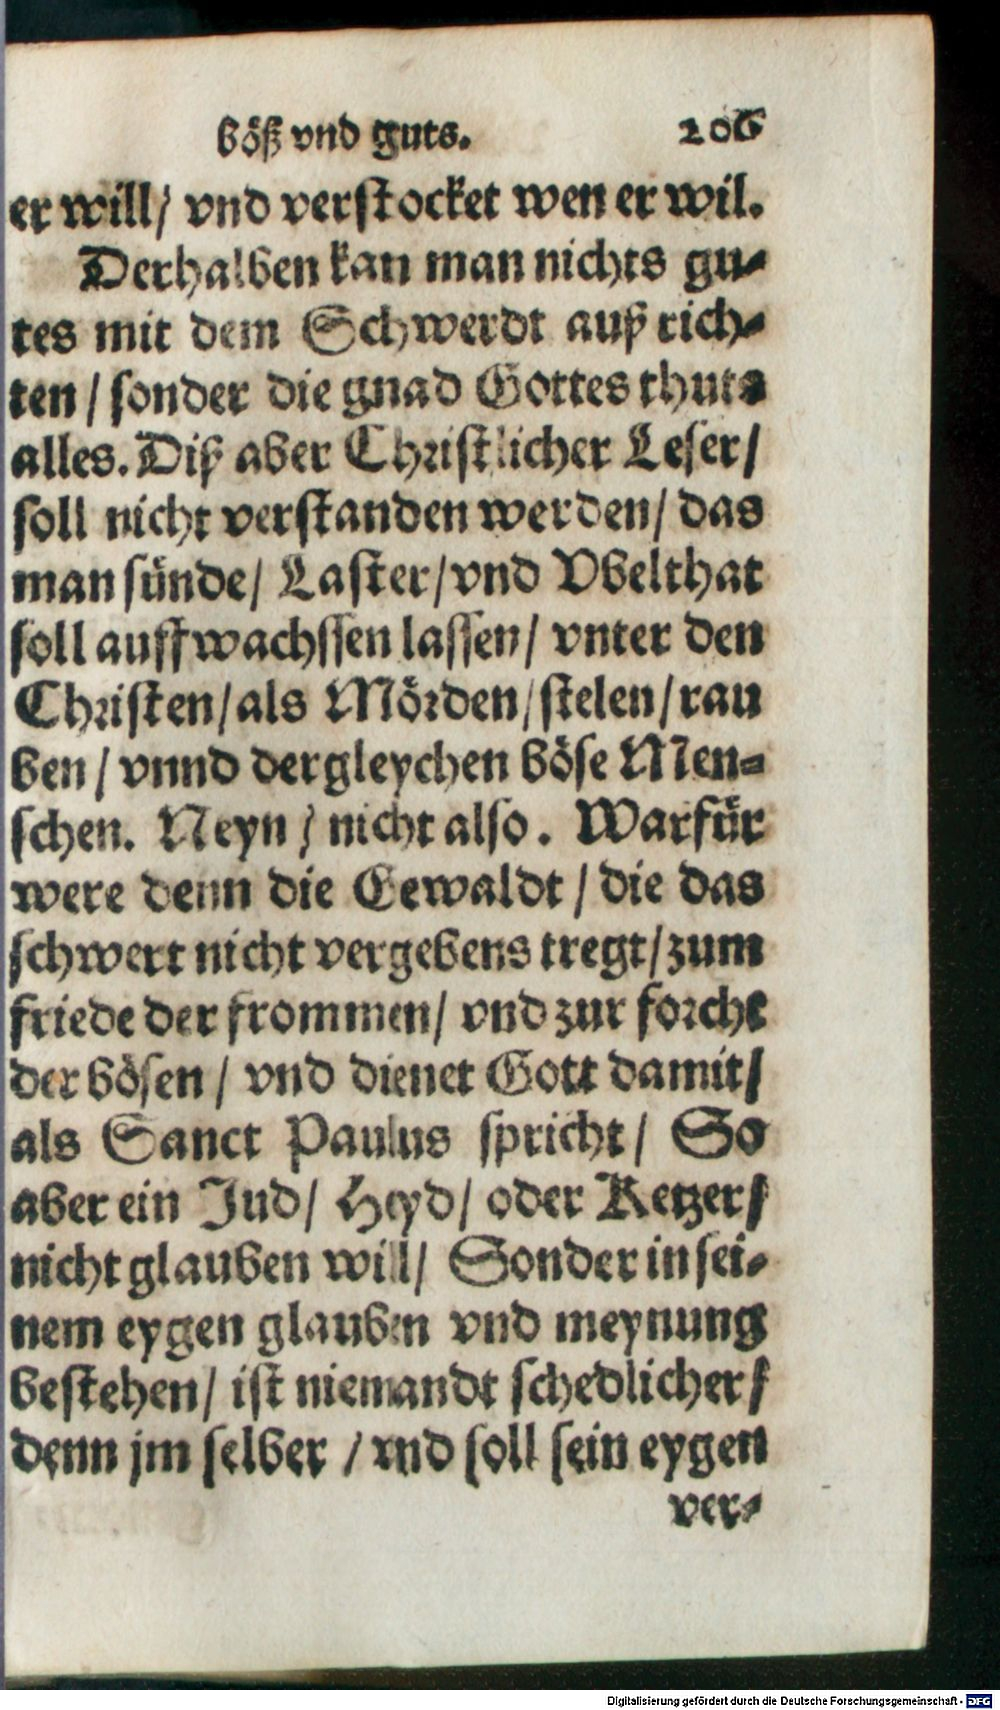 böß vnd guts. 206
er will/ vnd verstocket wen er wil.
Derhalben kan man nichts gu-
tes mit dem Schwerdt auß rich-
ten / sonder die gnad Gottes thuts
alles. Diß aber Christlicher Leser/
soll nicht verstanden werden/ das
man sünde/ Laster/ vnd Vbelthat
soll auffwachssen lassen/ vnter den
Christen/ als Mörden/ stelen/ rau
ben/ vnnd dergleychen böse Men-
schen. Neyn / nicht also. Warfür
were denn die Eewaldt / die das
schwert nicht vergebens tregt/ zum
friede der frommen/ vnd zur forcht
der bösen / vnd dienet Gott damit/
als Sanct Paulus spricht/ So
aber ein Jud/ Heyd/ oder Ketzer/
nicht glauben will/ Sonder in sei-
nem eygen glauben vnd meynung
bestehen/ ist niemandt schedlicher/
denn jm selber / vnd soll sein eygen
ver-
Digitalisierung gefördert durch die Deutsche Forschungsgemeinschaft - DFG